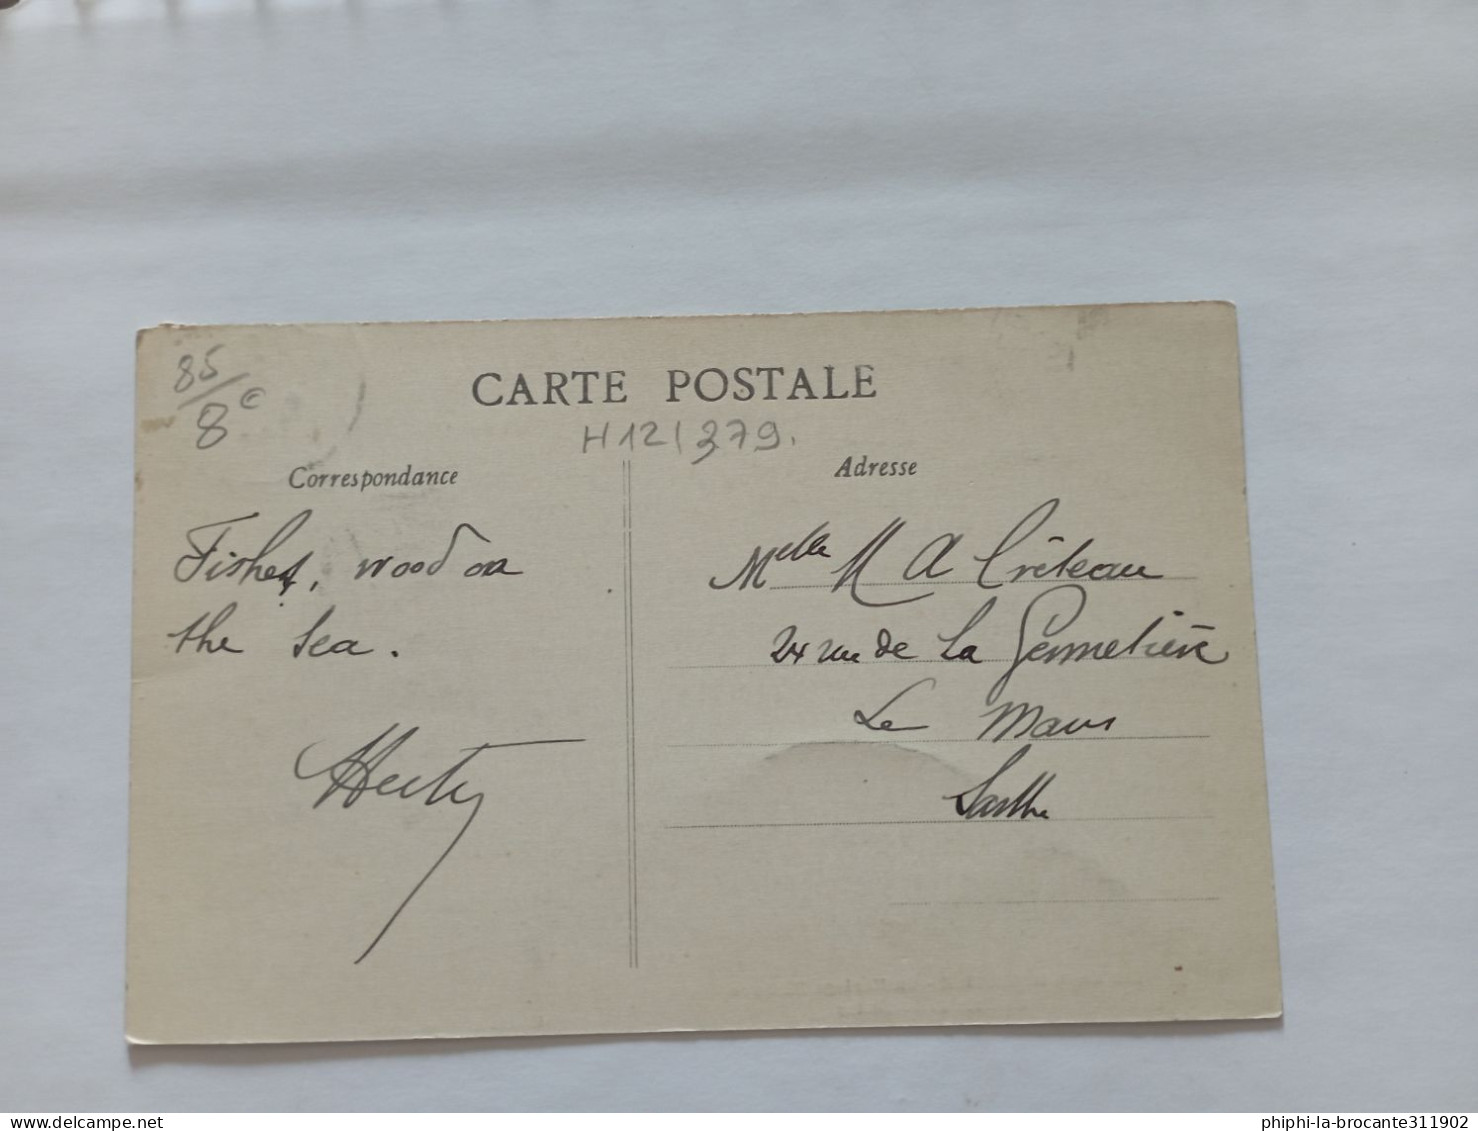 85/8€
CARTE POSTALE
H121379.
Correspondance
Adresse
Fishes, wood on
the sea.
Melle M A Créteau
24 rue de la
Le Mans
Sarthe
phiphi-la-brocante311902